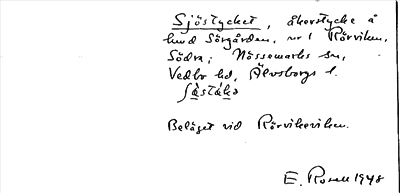 Sjöstycket, åkerstycke å
lund Sörgården, nr 1 Rörviken,
Södra, Nössemarks sn,
Vedbo hd, Älvsborgs l.
Beläget vid Rörvikeviken.
E. Rosell 1948